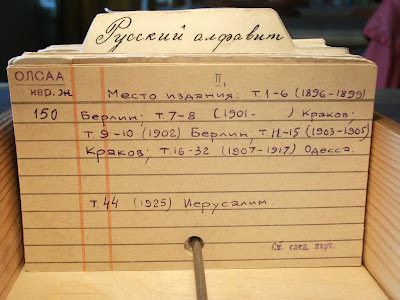 Русский алфавит
ОЛСАА
II.
ивр. ж
Место издания: т.1-6 (1896-1899)
150
Берлин; т.7-8 (1901- ) Краков;
т.9-10 (1902) Берлин; т.11-15 (1903-1905)
Краков; т.16-32 (1907-1917) Одесса.
т.44 (1925) Иерусалим.
См. след. карт.